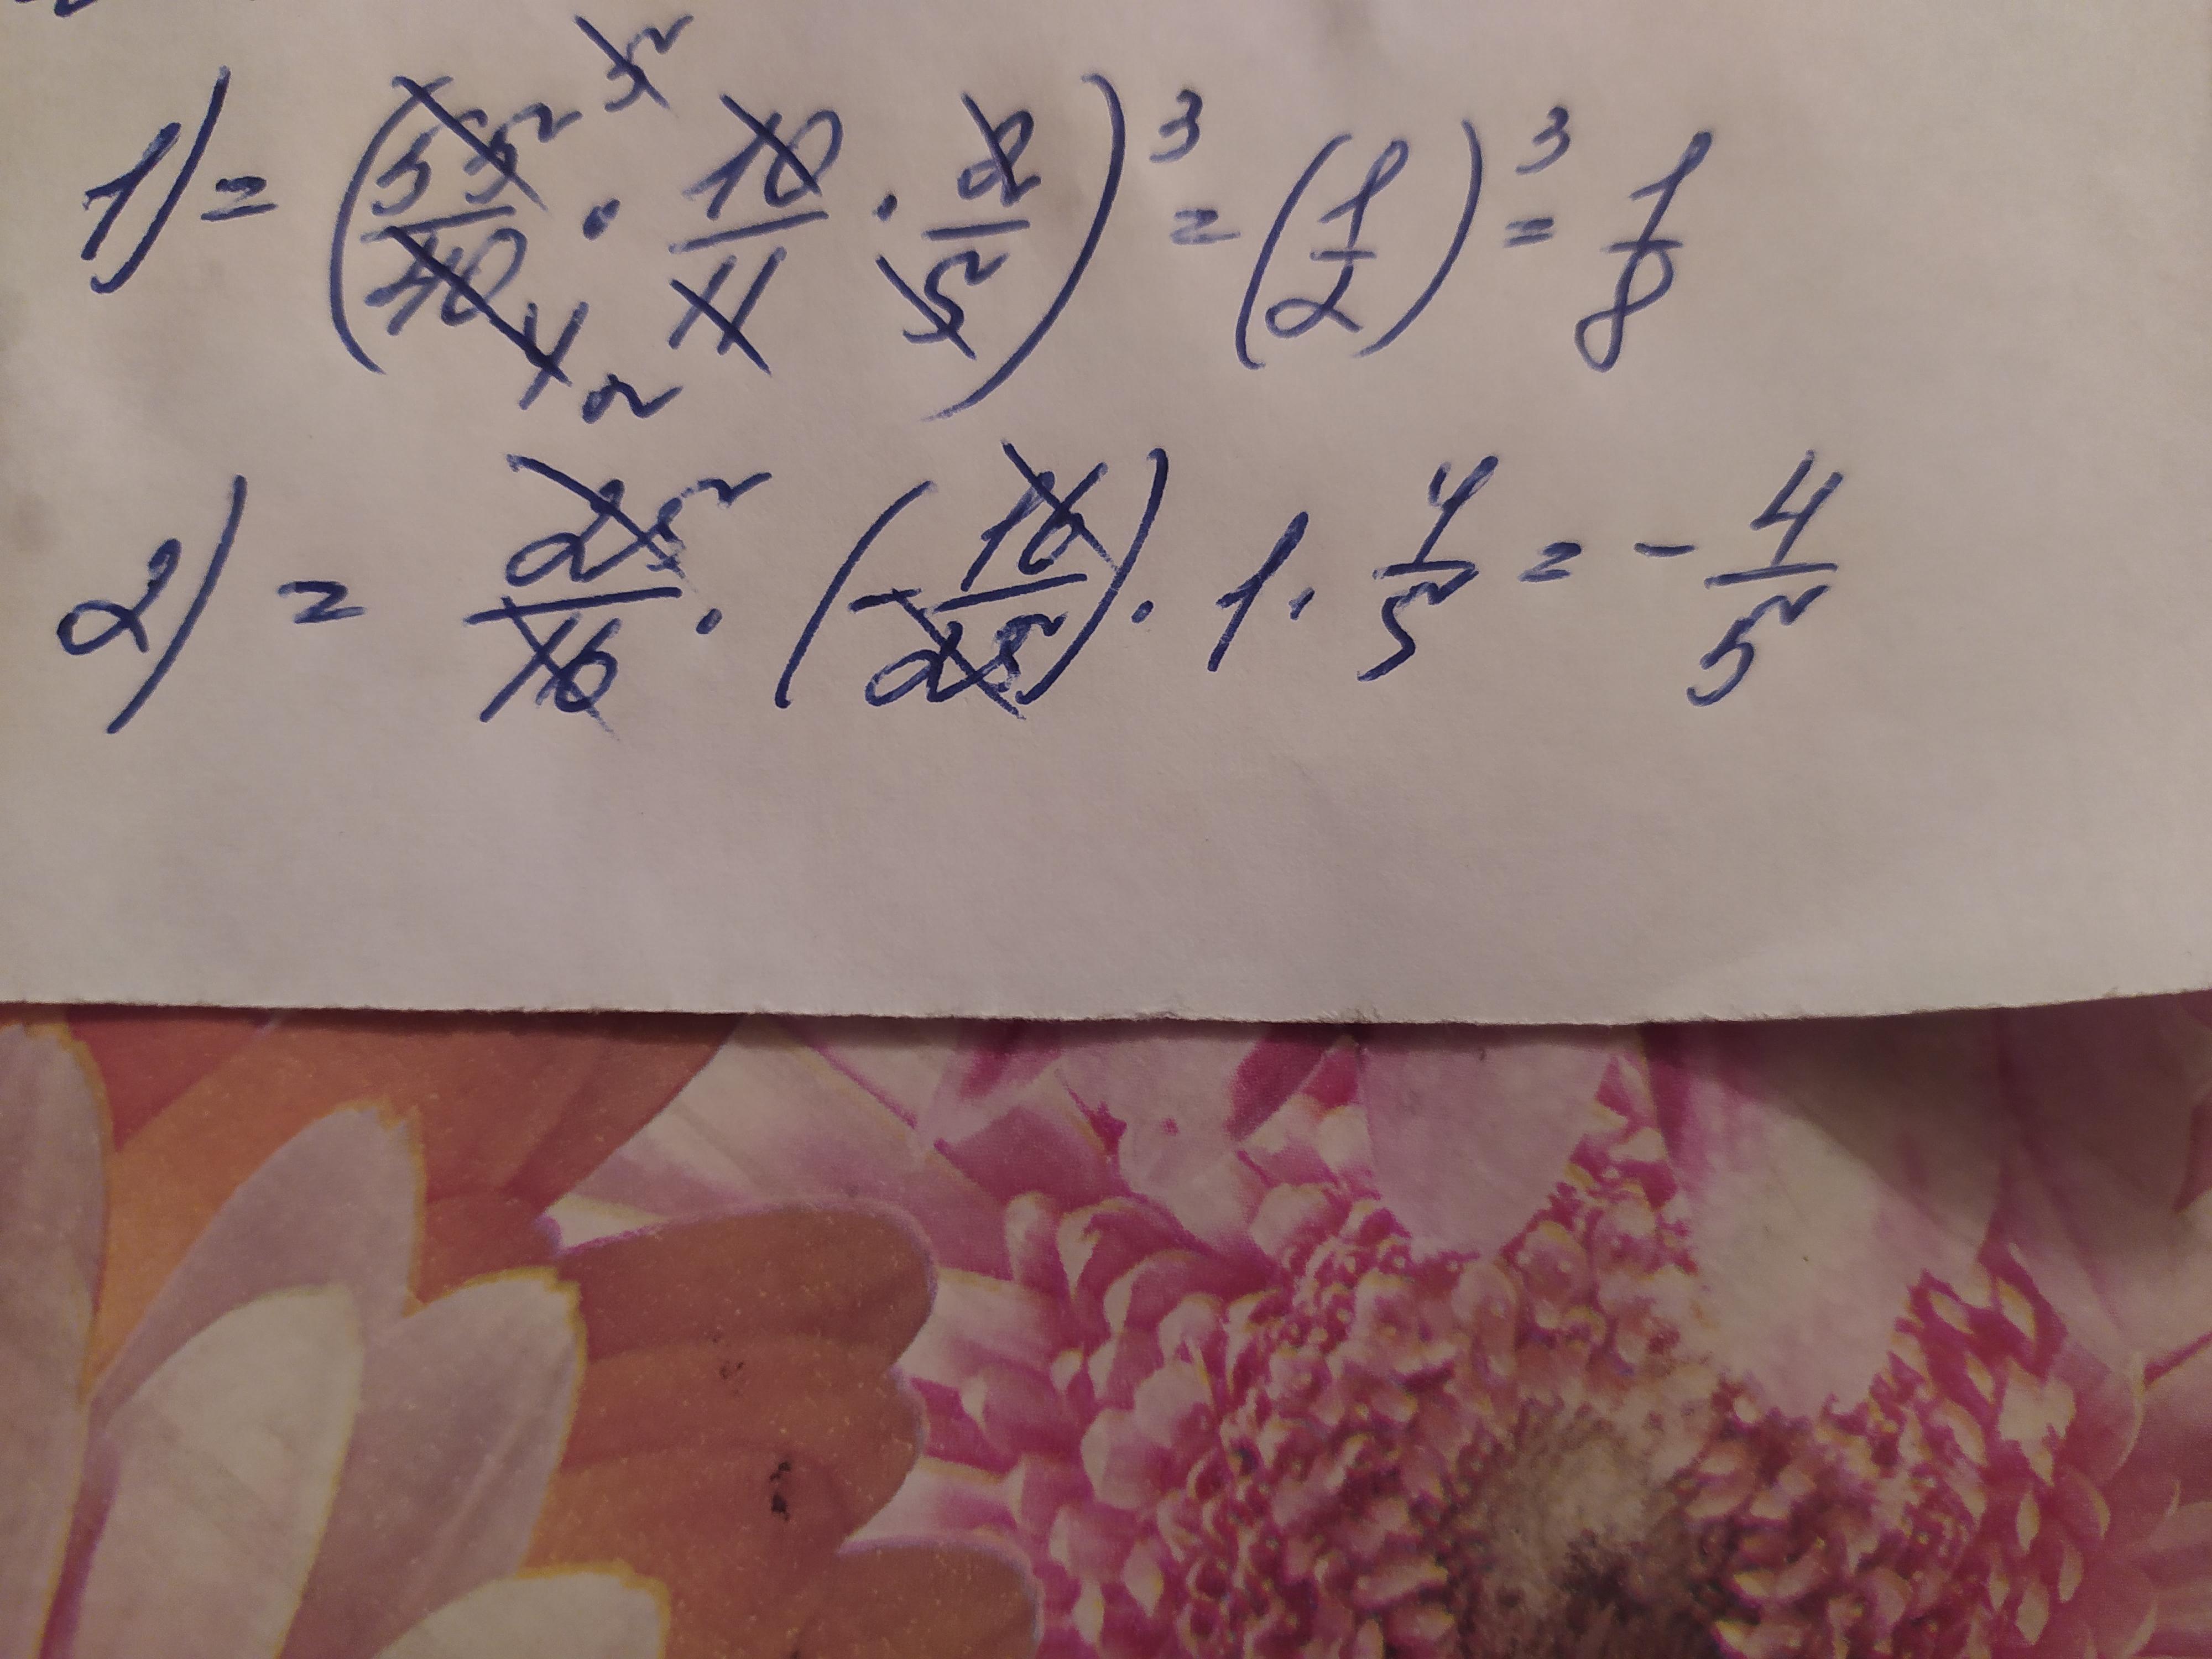 1) = (55/40 · 10/11 · 2/5)³ = (1/2)³ = 1/8
2) = 25/16 · (-16/25) · 1 · 4/5 = - 4/5